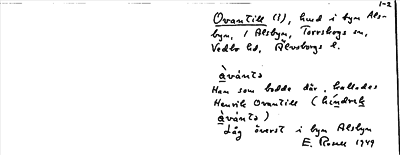 1-2
Ovantill (!), hmd i byn Als-
byn, 1 Alsbyn, Torrskogs sn,
Vedbo hd, Älvsborgs l.
àvántə
Han som bodde där kallades
Henrik Ovantill (hìndrek
àvántə)
Låg överst i byn Alsbyn
E. Rosell 1949